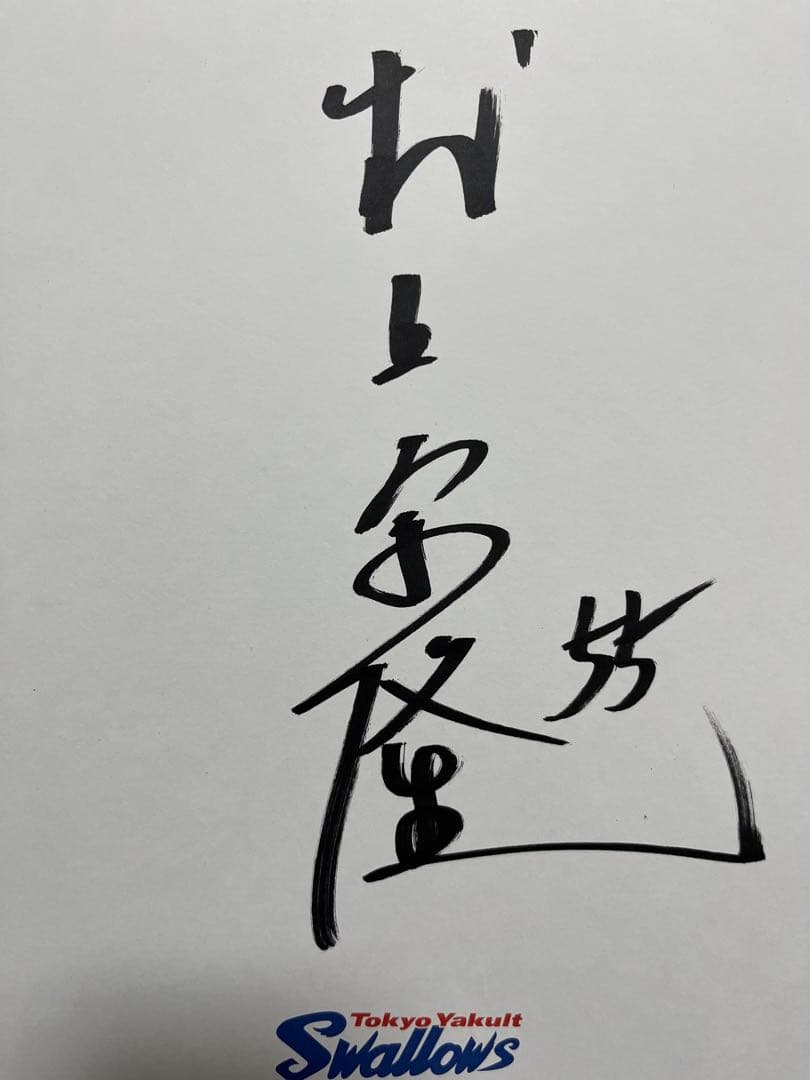 村上宗隆
55
Tokyo Yakult
Swallows